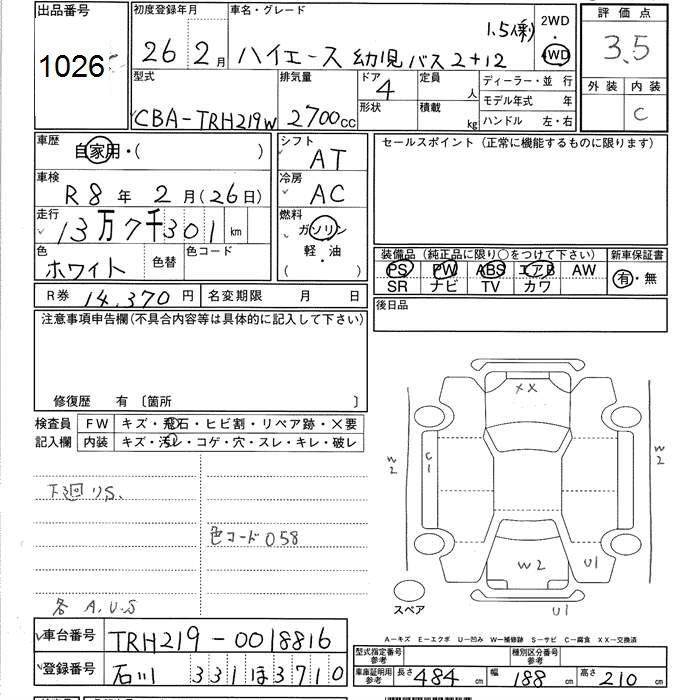 出品番号
1026
初度登録年月
26 2月
車名・グレード
ハイエース 幼児バス 2+12
2WD
・
4WD
評価点
3.5
外装 内装
C
型式
CBA-TRH219W
排気量
2700cc
ドア
4
形状
定員
人
積載
kg
ディーラー・並行
モデル年式 年
ハンドル 左・右
車歴
自家用・( )
車検
R8年 2月(26日)
走行
13万7千301km
色
ホワイト
色替
色コード
R券 14,370円
名変期限 月 日
シフト
AT
冷房
AC
燃料
ガソリン
軽・油
( )
セールスポイント(正常に機能するものに限ります)
装備品(純正品に限り○をつけて下さい)
PS PW ABS エアB AW
SR ナビ TV カワ
新車保証書
有・無
後日品
注意事項申告欄(不具合内容等は具体的に記入して下さい)
修復歴 有 〔箇所 〕
検査員
記入欄
FW キズ・飛石・ヒビ割・リペア跡・×要
内装 キズ・汚レ・コゲ・穴・スレ・キレ・破レ
下廻りS.
色コード058
各 A.U.S
XX
W2
C1
W2
W2
U1
U1
スペア
A-キズ E-エクボ U-凹み W-補修跡 S-サビ C-腐食 XX-交換済
車台番号 TRH219-0018816
登録番号 石川 331 ほ 3710
型式指定番号
参考
種別区分番号
参考
車庫証明用
参考
長さ 484cm 幅 188cm 高さ 210cm